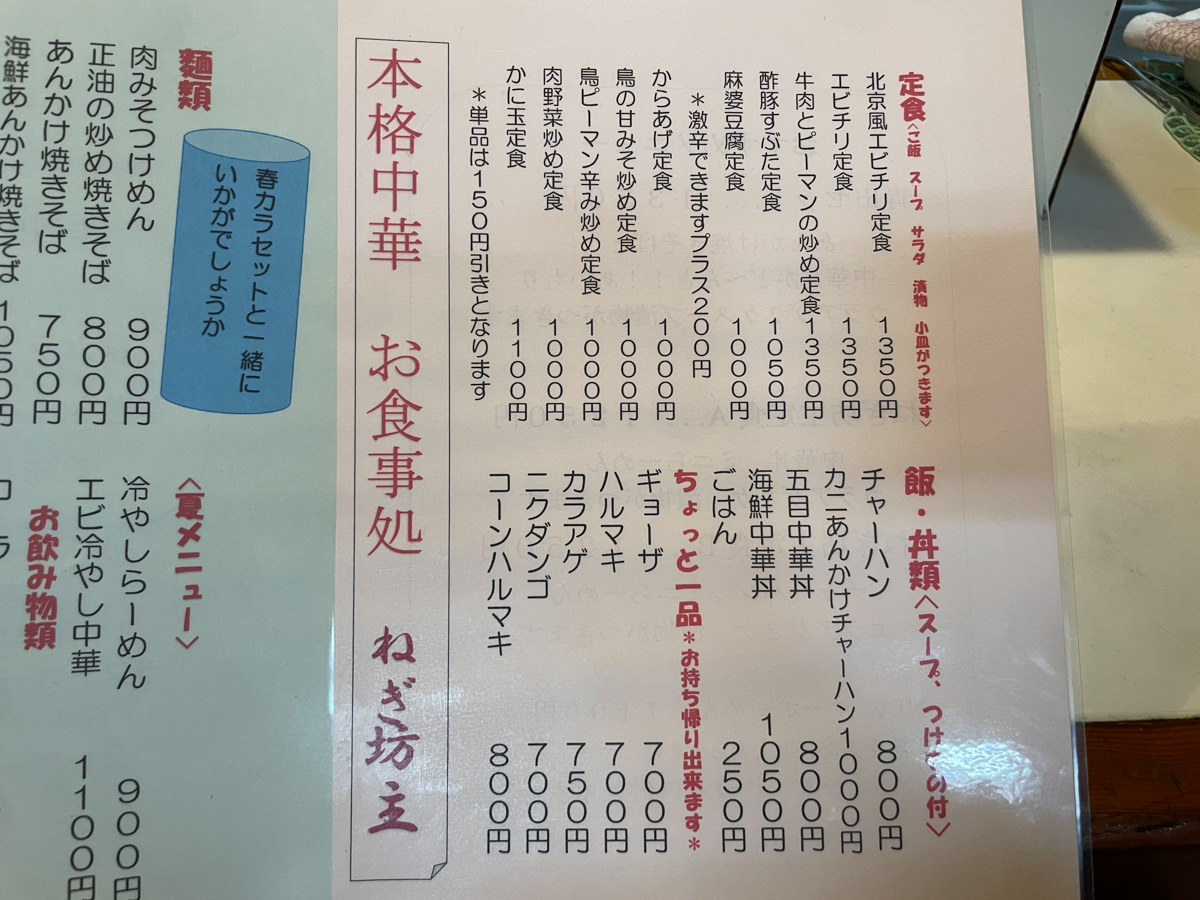 定食〈ご飯 スープ サラダ 漬物 小皿がつきます〉
北京風エビチリ定食 1350円
エビチリ定食 1350円
牛肉とピーマンの炒め定食 1350円
酢豚すぶた定食 1050円
麻婆豆腐定食 1000円
＊激辛できますプラス200円
からあげ定食 1000円
鳥の甘みそ炒め定食 1000円
鳥ピーマン辛み炒め定食 1000円
肉野菜炒め定食 1000円
かに玉定食 1100円
＊単品は150円引きとなります
飯・丼類〈スープ、つけもの付〉
チャーハン 800円
カニあんかけチャーハン1000円
五目中華丼 800円
海鮮中華丼 1050円
ごはん 250円
ちょっと一品＊お持ち帰り出来ます＊
ギョーザ 700円
ハルマキ 700円
カラアゲ 750円
ニクダンゴ 700円
コーンハルマキ 800円
本格中華 お食事処 ねぎ坊主
春カラセットと一緒に
いかがでしょうか
麺類
肉みそつけめん 900円
正油の炒め焼きそば 800円
あんかけ焼きそば 750円
海鮮あんかけ焼きそば 1050円
〈夏メニュー〉
冷やしらーめん 900円
エビ冷やし中華 1100円
お飲み物類